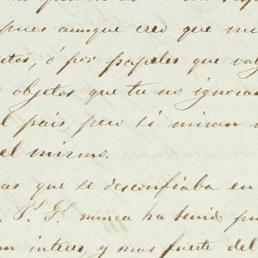 pues aunque creo que mi
tos, ó por papeles que val
objetos que tu no ignoras
l pais, pero si miran
el mismo.
as que se desconfiaba en
nunca ha tenido pu
n interes, y mas fuerte del